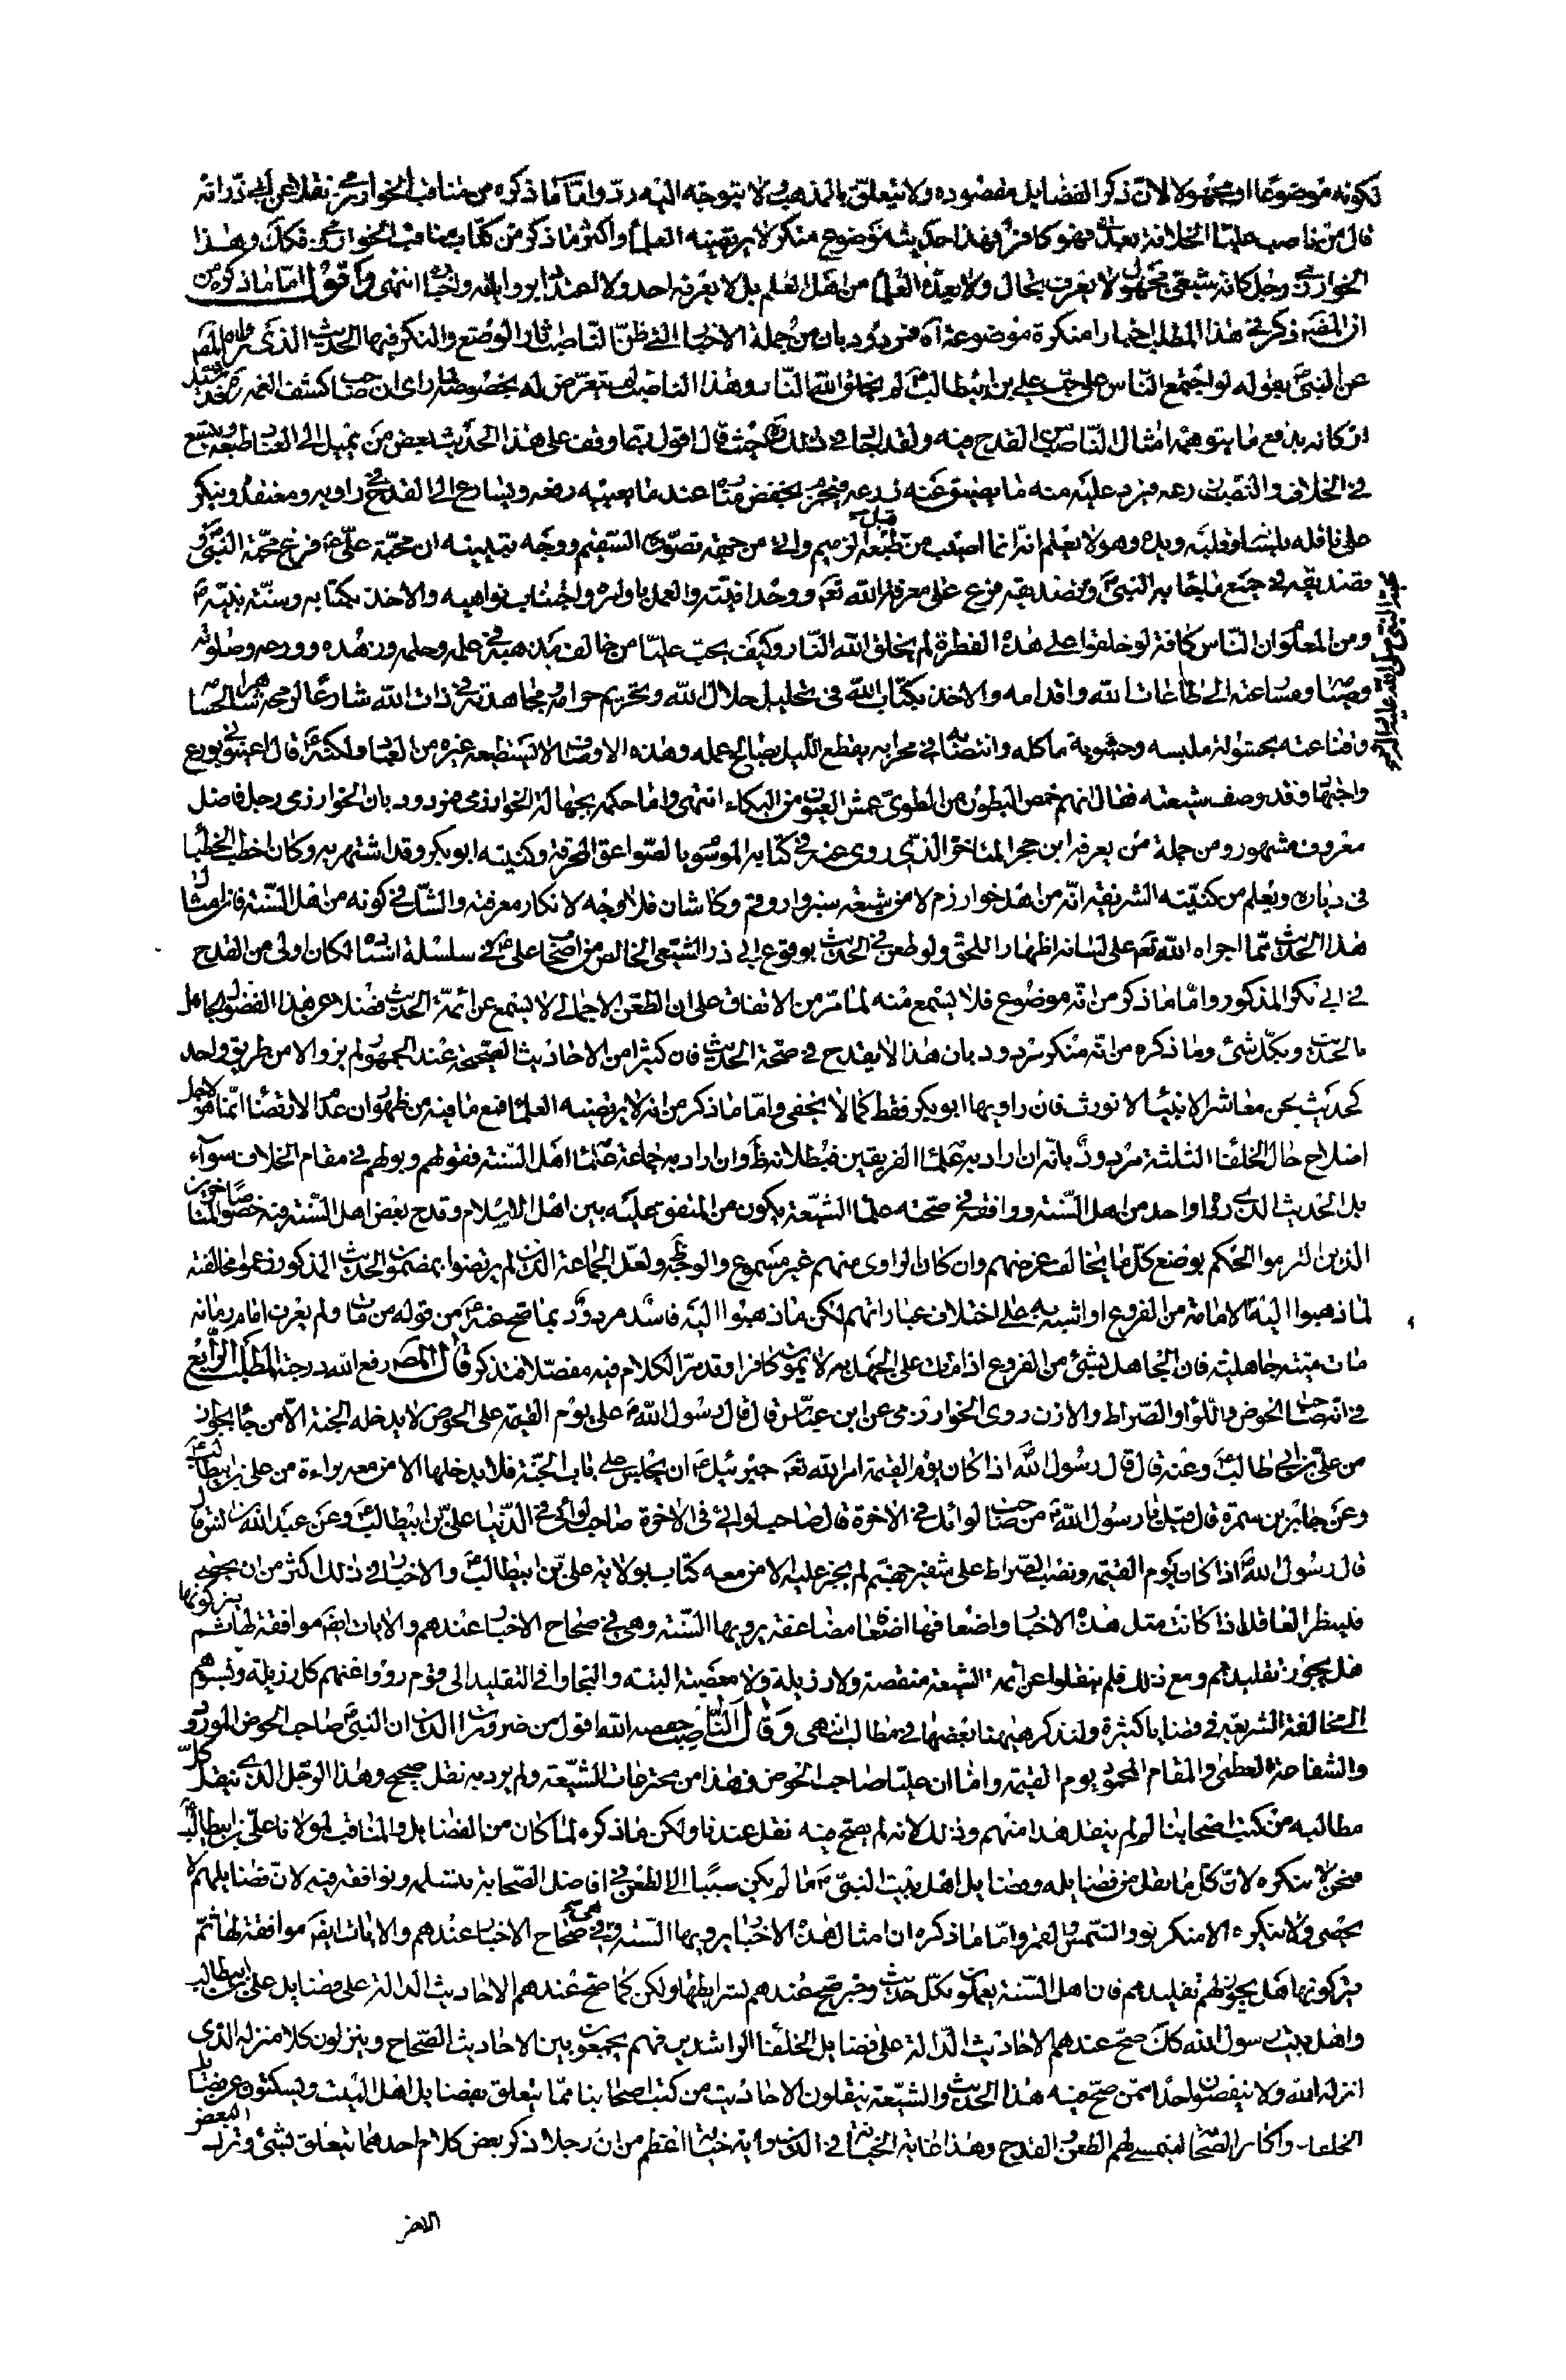 بكونه موضوعا او مجهولا لان ذكر الفضايل مقصوده ولا يتعلق بالمذهب لا يتوجه اليه رد وامّا ما ذكره من مناقب الخوارزمي نقلا عن ابي ذر انه
قال من ناصب عليّا الخلافة بعدي فهو كافر فهذا حديث موضوع منكر لا يرتضيه العلماء واكثر ما ذكر من كتاب مناقب الخوارزمي فكك وهذا
الخوارزمي رجل كانه شيعي مجهول لا يعرف بحال ولا يعده العلماء من اهل العلم بل لا يعرفه احد ولا اعتداد برواياته واخباره انتهى واقول امّا ما ذكره من
ان المص ذكر في هذا المطلب اخبارا منكرة موضوعة آه فمردود بان من جملة الاخبار التي ظنّ الناصب آثار الوضع والنكر فيها الحديث الذي رواه المص
عن النبي ص بقوله لو اجتمع الناس على حب علي بن ابيطالب لم يخلق الله النار وهذا الناصب لم يتعرض له بخصوصه لما راى ان صاحب كشف الغمة ره قد
ان كانه يدفع ما يتوهمه امثال الناصب من القدح فيه ولقد اجاد في ذلك حيث قال اقول ربما وقف على هذا الحديث بعض من يميل الى العناد طبعه
في الخلاف والنصب فيرد عليه منه ما يضيق عنه ذرعه فيجزم بخفض مناره عندما يعييه رفعه ويسارع الى القدح في راويه ومعتقده وينكر
على ناقله وهو لا يعلم انه انما اصيب من قبل طبعه الوخيم واتي من جهة تصوره السقيم ووجه تبيينه ان محبة علي ع فرع محبة النبي ص و
تصديقه في جميع ما جاء به النبي ص وتصديقه فرع على معرفة الله تعم ووحدانيته والعمل باوامره واجتناب نواهيه والاخذ بكتابه وسنة نبيه ص
ومن المعلوم ان الناس كافة لو خلقوا على هذه الفطرة لم يخلق الله النار وكيف يحب عليّا من خالف مذهبه في علمه وحلمه وزهده وورعه وصلوته
وصيامه ومسارعته الى طاعات الله واقدامه والاخذ بكتاب الله في تحليل حلال الله وتحريم حرامه ومجاهدته في ذات الله شارعا
وقناعته بخشونة ملبسه وجشوبة ماكله وانتصابه في محرابه يقطع الليل بصالح عمله وهذه الاوصاف لا يستطيعه غيره من العباد ولكنه ع قال اعينوني بورع
واجتهاد وقد وصف شيعته فقال انهم خمص البطون من الطوى عمش العيون من البكاء انتهى وامّا حكمه بجهالة الخوارزمي فمردود بان الخوارزمي رجل فاضل
معروف مشهور ومن جملة من يعرفه ابن حجر المتاخر الذي روى عنه في كتابه الموسوم بالصواعق المحرقة وكنيته ابو بكر وقد اشتهر به وكان اخطب الخطباء
في دياره ويعلم من كنيته الشريفة انه من اهل خوارزم لا من شيعة سبزوار وقم وكاشان فلا وجه لانكار معرفته والشك في كونه من اهل السنة فان امثال
هذا الحديث مما اجراه الله تعم على لسانه اظهارا للحق ولو طعن في الحديث بوقوع ابي ذر الشيعي الخالص من اصحاب علي ع في سلسلة اسناده لكان اولى من القدح
في ابي بكر المذكور وامّا ما ذكر من انه موضوع فلا يسمع منه لما مرّ من الاتفاق على ان الطعن الاجمالي لا يسمع من ائمة الحديث فضلا عن هذا الفضول الجاهل
بالحديث وبكل شئ وما ذكره من انه منكر مردود بان هذا لا يقدح في صحة الحديث فان كثيرا من الاحاديث الصحيحة عند الجمهور لم يرو الا من طريق واحد
كحديث نحن معاشر الانبياء لا نورث فان راويها ابو بكر فقط كما لا يخفى وامّا ما ذكر من انه لا يرتضيه العلماء فمع ما فيه من ظهور ان عدم الارتضاء انما هو لاجل
اصلاح حال الخلفاء الثلثة مردود بانه ان اراد به علماء الفريقين فبطلانه ظ وان اراد به جماعة علماء اهل السنة فقولهم وبولهم في مقام الخلاف سواء
بل الحديث الذي رواه واحد من اهل السنة ووافقه في صحته علماء الشيعة يكون من المتفق عليه بين اهل الاسلام وقدح بعض اهل السنة فيه خصوصا المتاخرين
الذين التزموا الحكم بوضع كل ما يخالف غرضهم وان كان الراوي منهم غير مسموع والوجه ظ ولعل الجماعة الذين لم يرتضوا بمضمون الحديث المذكور زعموا مخالفته
لما ذهبوا اليه من ان الامامة من الفروع او اشبه به على اختلاف عباراتهم لكن ما ذهبوا اليه فاسد مردود بما صح عنه ص من قوله من مات ولم يعرف امام زمانه
مات ميتة جاهلية فان الجاهل بشئ من الفروع اذا مات على الجهل به لا يموت كافرا وقد مرّ الكلام فيه مفصلا فتذكر قال المص رفع الله درجته المطلب الرابع
في انه صاحب الحوض واللواء والصراط والاذن روى الخوارزمي عن ابن عباس قال قال رسول الله ص علي يوم القيمة على الحوض لا يدخله الجنة الا من جاء بجواز
من علي بن ابي طالب ع وعنه قال قال رسول الله ص اذا كان يوم القيمة امر الله تعم جبرئيل ع ان يجلس على باب الجنة فلا يدخلها الا من معه براءة من علي بن ابيطالب ع
وعن جابر بن سمرة قال قيل يا رسول الله ص من صاحب لوائك في الاخرة قال صاحب لوائي في الاخرة صاحب لوائي في الدنيا علي بن ابيطالب ع وعن عبد الله بن انس قال
قال رسول الله ص اذا كان يوم القيمة ونصب الصراط على شفير جهنم لم يجز عليه الا من معه كتاب بولاية علي بن ابيطالب ع والاخبار في ذلك اكثر من ان يحصى
فلينظر العاقل اذا كانت مثل هذه الاخبار واضعافها اضعافا مضاعفة يرويها السنة وهي في صحاح الاخبار عندهم والايات ايضا موافقة لها ثم يتركونها
هل يجوز تقليدهم ومع ذلك فلم ينقلوا عن ائمة الشيعة منقصة ولا رذيلة ولا معصية البتة والتجاوا في التقليد الى قوم رووا عنهم كل رزيلة ونسبوهم
الى مخالفة الشريعة في قضايا كثيرة ولنذكر هيهنا بعضها في مطالب انتهى وقال الناصب خفضه الله اقول من ضروريات الدين ان النبي ص صاحب الحوض المورود
والشفاعة العظمى والمقام المحمود يوم القيمة وامّا ان عليّا صاحب الحوض فهذا من مخترعات الشيعة ولم يرد به نقل صحيح وهذا الرجل الذي ينقل كل
مطالبه من كتب اصحابنا لم ينقل هذا منهم وذلك لانه لم يصح فيه نقل عندنا ولكن ما ذكره لما كان من الفضايل والمناقب لمولانا علي بن ابيطالب ع
فنحن لا ننكره لان كل ما نقل من فضايله وفضايل اهل بيت النبي ص ما لم يكن سببا الى الطعن في افاضل الصحابة نسلمه ونوافقه فيه لان فضايلهم لا
يحصى ولا ينكره الا منكر نور الشمس والقمر وامّا ما ذكره ان امثال هذه الاخبار يرويها السنة وهي في صحاح الاخبار عندهم والايات ايضا موافقة لها ثم
يتركونها هل يجوز لهم تقليدهم فان اهل السنة يعملون بكل حديث وخبر صح عندهم بشرايطها ولكن كما صح عندهم الاحاديث الدالة على فضايل علي بن ابيطالب
واهل بيت رسول الله كك صح عندهم الاحاديث الدالة على فضايل الخلفاء الراشدين فهم يجمعون بين الاحاديث الصحاح وينزلون كلا منزله الذي
انزله الله ولا ينقصون واحدا ممن صح فيه هذا الحديث والشيعة ينقلون الاحاديث من كتب اصحابنا مما يتعلق بفضايل اهل البيت ويسكتون عن فضايل
الخلفاء واكابر الصحابة ليتمشى لهم الطعن والقدح وهذا غاية الخيانة في الدين واية خيانة اعظم من ان رجلا ذكر بعض كلام احد مما يتعلق بشئ وترك البعض
الاخر